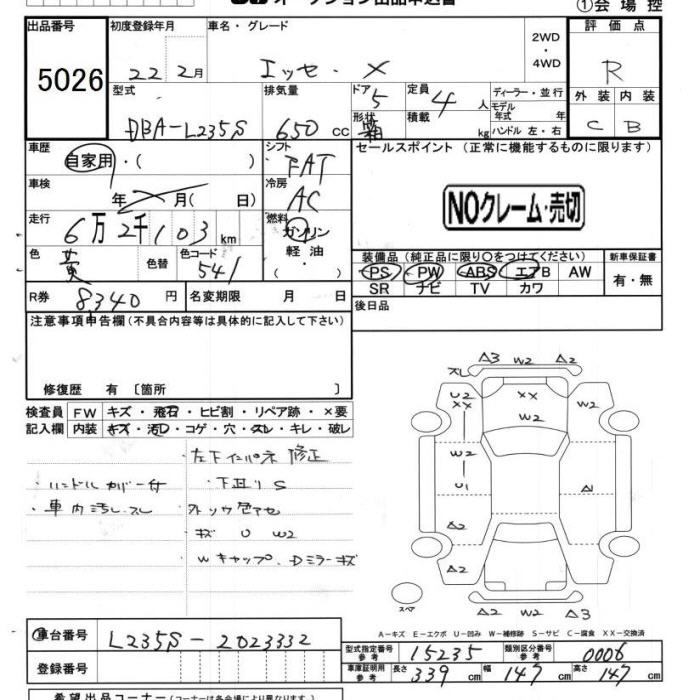 ①会場控
出品番号 初度登録年月 車名・グレード 2WD・4WD 評価点
5026 22 2月 エッセ・X R
型式 排気量 ドア 5 定員 4人 ディーラー・並行 外装 内装
DBA-L235S 650 cc 形状 箱 積載 kg モデル年式 年 ハンドル 左・右 C B
車歴 自家用・( ) シフト FAT セールスポイント (正常に機能するものに限ります)
車検 年 月( 日) 冷房 AC
NOクレーム・売切
走行 6万2千103km 燃料 ガソリン
軽油・( )
色 黄 色替 色コード 541
装備品(純正品に限り○をつけてください) 新車保証書
PS PW ABS エアB AW 有・無
SR ナビ TV カワ
R券 8340円 名変期限 月 日 後日品
注意事項申告欄(不具合内容等は具体的に記入して下さい)
修復歴 有 〔箇所 〕
検査員 FW キズ・飛石・ヒビ割・リペア跡・×要
記入欄 内装 キズ・汚れ・コゲ・穴・スレ・キレ・破レ
・左下インパネ 修正
・ハンドルカバー付 ・下廻りS
・車内汚レ.スレ
・キズ U W2
Wキャップ.Dミラーキズ
A3 W2 A2
スレ
U2 XX XX
W2
W2
U1 A1
A2
A2
スペア A2 W2 A3
A-キズ E-エクボ U-凹み W-補修跡 S-サビ C-腐食 XX-交換済
車台番号 L235S-2023332
型式指定番号 参考 15235 類別区分番号 参考 0006
登録番号 車庫証明用 参考 長さ 339cm 幅 147cm 高さ 147cm
希望出品コーナー(コーナーは各会場により異なります)